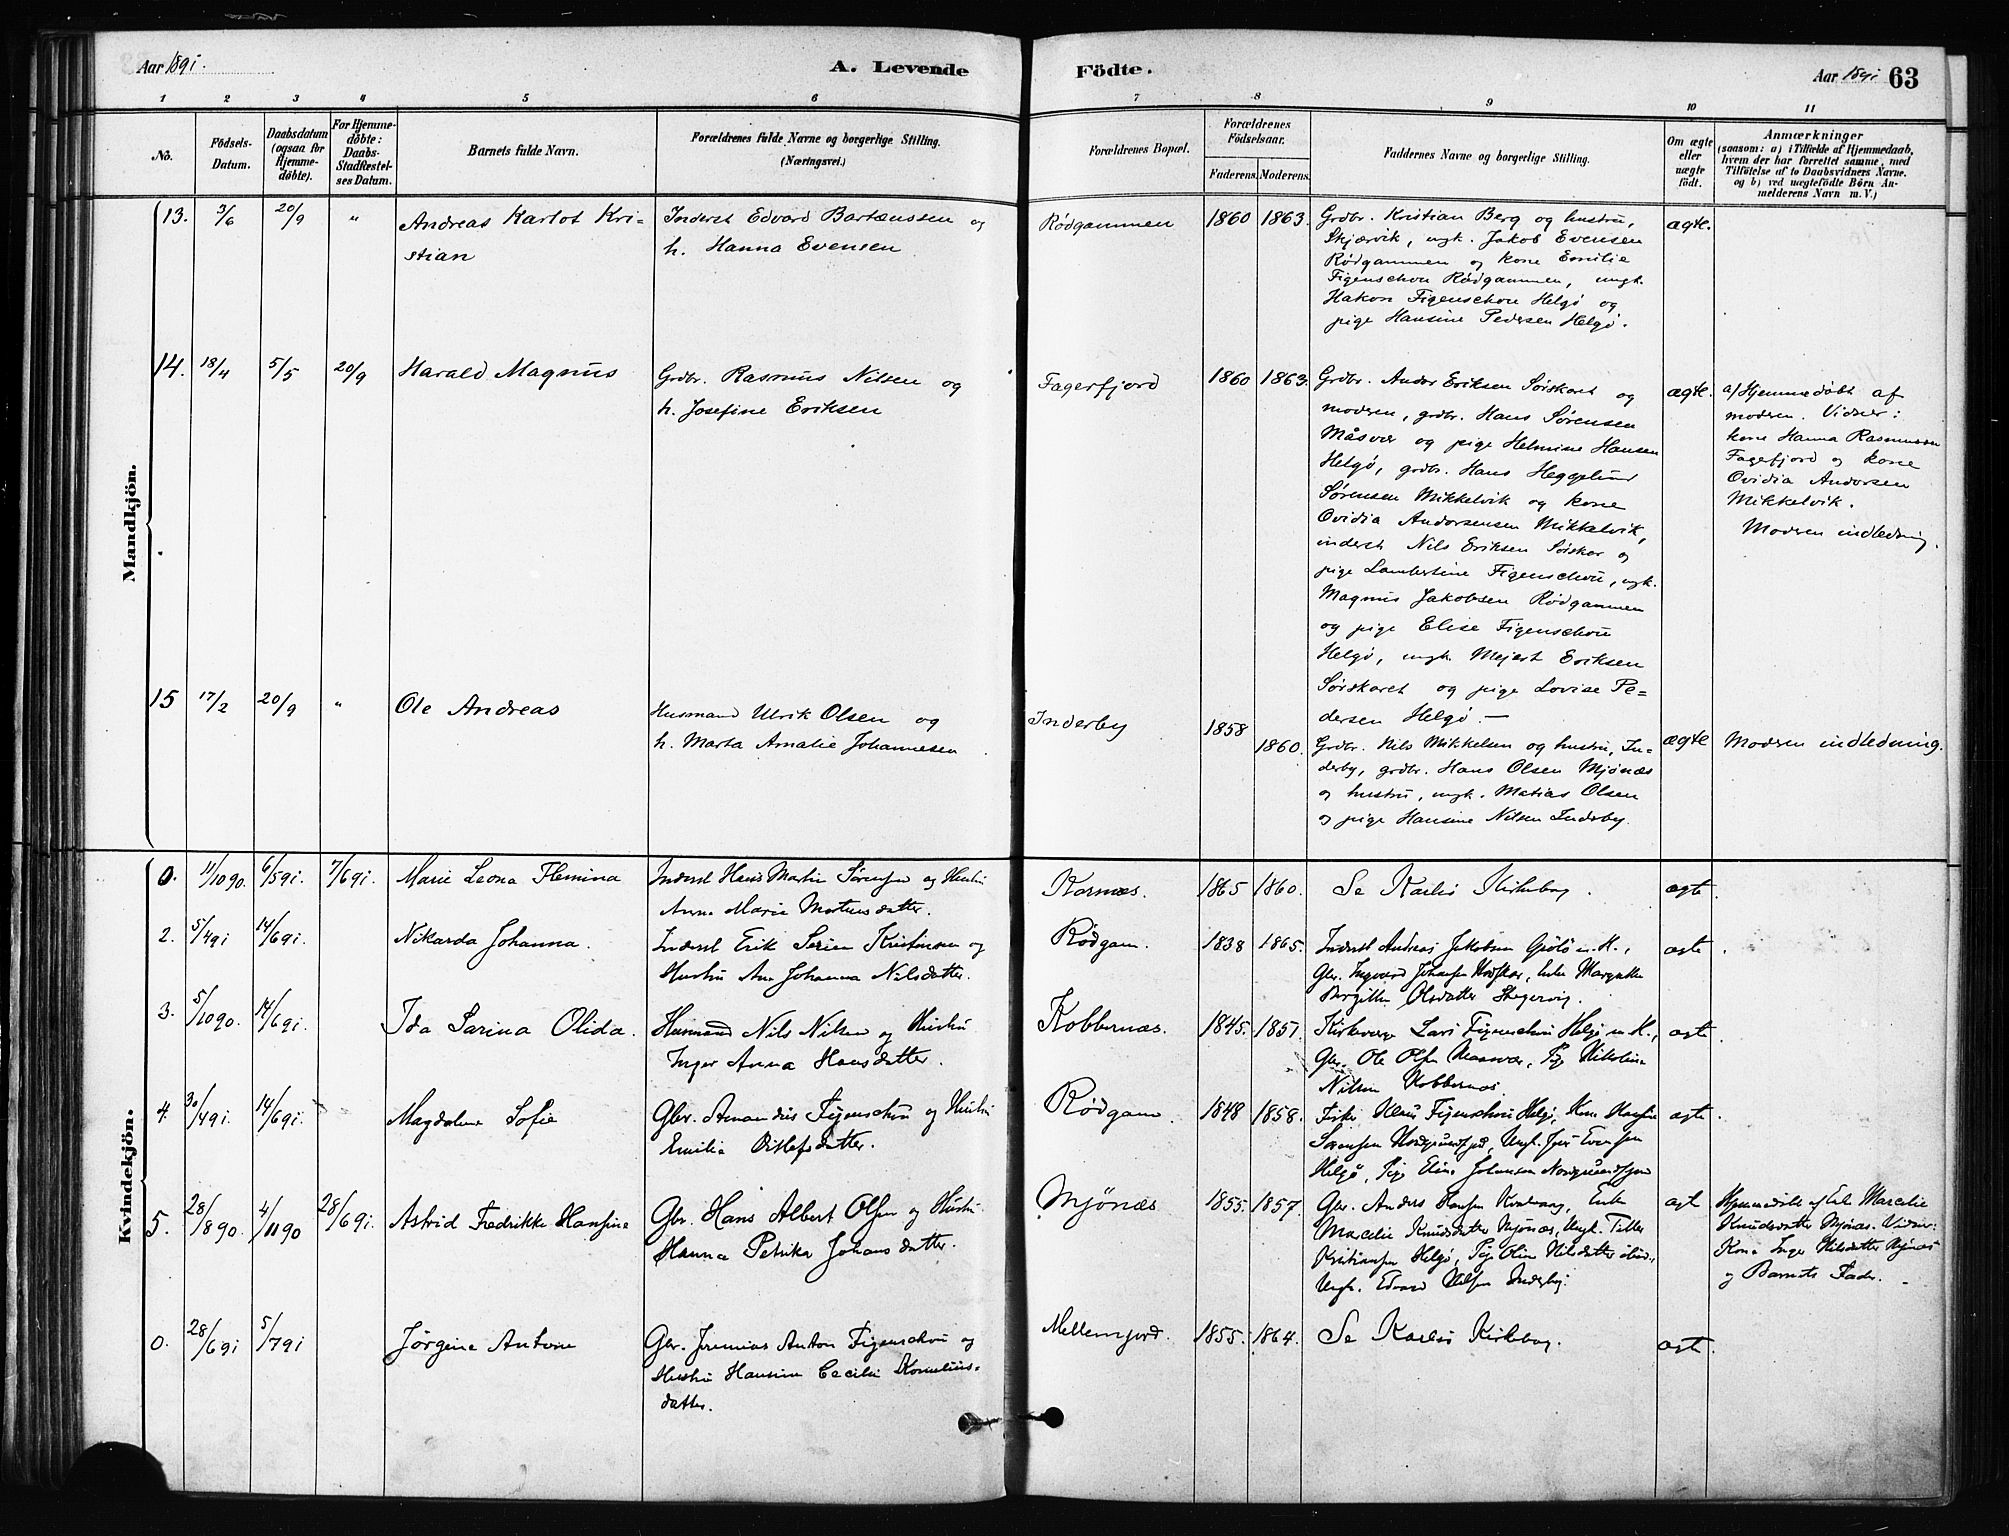 Aar 1891.
A. Levende
Födte.
Aar 1891
63
1 2 3 4 5 6 7 8 9 10 11
No.
Födsels-
Datum.
Daabsdatum
(ogsaa for
Hjemme-
döbte).
For Hjemme-
döbte:
Daabs-
Stadfæstel-
ses Datum.
Barnets fulde Navn.
Forældrenes fulde Navne og borgerlige Stilling.
(Næringsvei.)
Forældrenes Bopæl.
Forældrenes
Födselsaar.
Faderens.
Moderens.
Faddernes Navne og borgerlige Stilling.
Om ægte
eller
uægte
födt.
Anmærkninger
(saasom: a) i Tilfælde af Hjemmedaab,
hvem der har forrettet samme, med
Tilföielse af to Daabsvidners Navne.
og b) ved uægtefödte Börn An-
melderens Navn m. V.)
Mandkjön.
13. 3/6 20/9 "
Andreas Karlot Kri-
stian
Inderst Edvard Bartænssen og
h. Hanna Evensen
Rödgammen
1860 1863.
Grdbr. Kristian Berg og hustru,
Skjærvik, ungk. Jakob Evensen
Rödgammen og kone Emilie
Figenschou Rödgammen, ungk.
Hakon Figenschou Helgö og
pige Hansine Pedersen Helgö.
ægte.
14. 18/4 5/5 20/9
Harald Magnus
Grdbr. Rasmus Nilsen og
h. Josefine Eriksen
Fagerfjord
1860 1863.
Grdbr. Andor Eriksen Sörskaret og
modren, grdbr. Hans Sörensen
Måsvær og pige Helmine Hansen
Helgö, grdbr. Hans Heggelund
Sörensen Mikkelvik og kone
Ovidia Andorsensen Mikkelvik,
inderst Nils Eriksen Sörskar og
pige Lambertine Figenschou, ugk.
Magnus Jakobsen Rödgammen
og pige Elise Figenschou
Helgö, ungk. Mejert Eriksen
Sörskaret og pige Lovise Pe-
dersen Helgö. —
ægte.
a/ Hjemmedöbt af
modren. Vidner:
kone Hanna Rasmussen
Fagefjord og kone
Ovidia Andorsen
Mikkelvik.
Modren indledning.
15 17/2 20/9 "
Ole Andreas
Husmand Ulrik Olsen og
h. Marta Amalie Johannesen
Inderby
1858
1860.
Grdbr. Nils Mikkelsen og hustru, In-
derby, grdbr. Hans Olsen Mjönæs
og hustru, ungk. Matias Olsen
og pige Hansine Nilsen Inderby.
ægte
Modren indledning.
Kvindekjön.
0. 11/10 90. 6/5 91. 7/6 91.
Marie Leona Flemina
Inderst Hans Martin Sörensen og Hustru
Anna Marie Mortensdatter.
Kornæs.
1865 1860.
Se Karlsö Kirkebog.
ægte
2. 5/4 91 14/6 91.
Nikarda Johanna.
Inderst Erik Kristinsen og
Hustru Ane Johanna Nilsdatter.
Rödgam.
1838 1865.
Inderst Andreas Jakobsen m. H.,
Gbr. Ingvard Johansen, Enke Margrethe
Birgitte Olsdatter
ægte
3. 5/10 90. 14/6 91.
Ida Sarina Olida.
Husmand Nils Nilsen og Hustru
Inger Anna Hansdatter.
Kobbernæs.
1845. 1851.
Kirkeværge Lars Figenschou Helgö m. H.,
Gbr. Ole Olsen Maasvær, Pige Nikoline
Nilsen Kobbernæs
ægte
4. 30/4 91. 14/6 91.
Magdalene Sofie
Gbr. Amandus Figenschou og Hustru
Emilie Ditlefsdatter.
Rödgam
1848 1858.
Fisker Figenschou Helgö, Kone
Sörensen, Ungk. Evensen
Helgö, Pige Johansen
ægte
5. 28/8 90. 4/11 90 28/6 91.
Astrid Fredrikke Hansine
Gbr. Hans Albert Olsen og Hustru
Hanna Petrika Johansdatter.
Mjönæs
1855. 1857.
Gbr. Anders Hansen, Enke
Marcelie Knudsdatter Mjönæs, Ungk.
Kristiansen Helgö, Pige Olin Nilsdatter
Ungk. Edvard Nilsen Inderby.
ægt
Hjemmedöbt af Enke Marcelie
Knudsdatter Mjönæs. Vidner:
Kone Inger Nilsdatter Mjönæs
og Barnets Fader.
0. 28/6 91 5/7 91
Jörgine Antone
Gbr. Jeremias Anton Figenschou og
Hustru Hansine Cecilie Kornelius-
datter.
Mellemjord.
1855. 1864.
Se Karlsö Kirkebog.
ægt